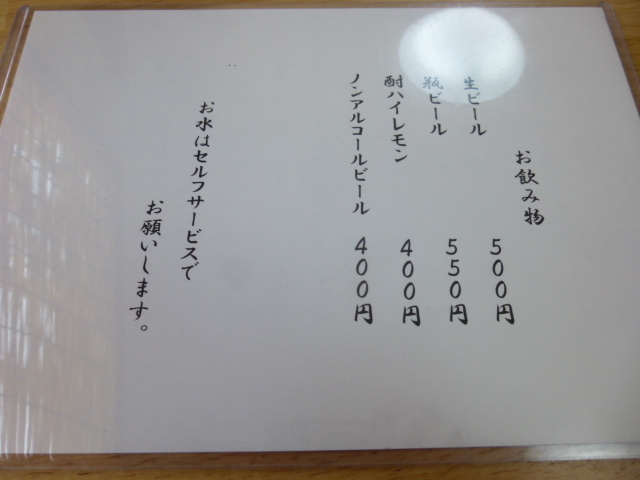 お飲み物
生ビール 500円
瓶ビール 550円
酎ハイレモン 400円
ノンアルコールビール 400円
お水はセルフサービスで
お願いします。